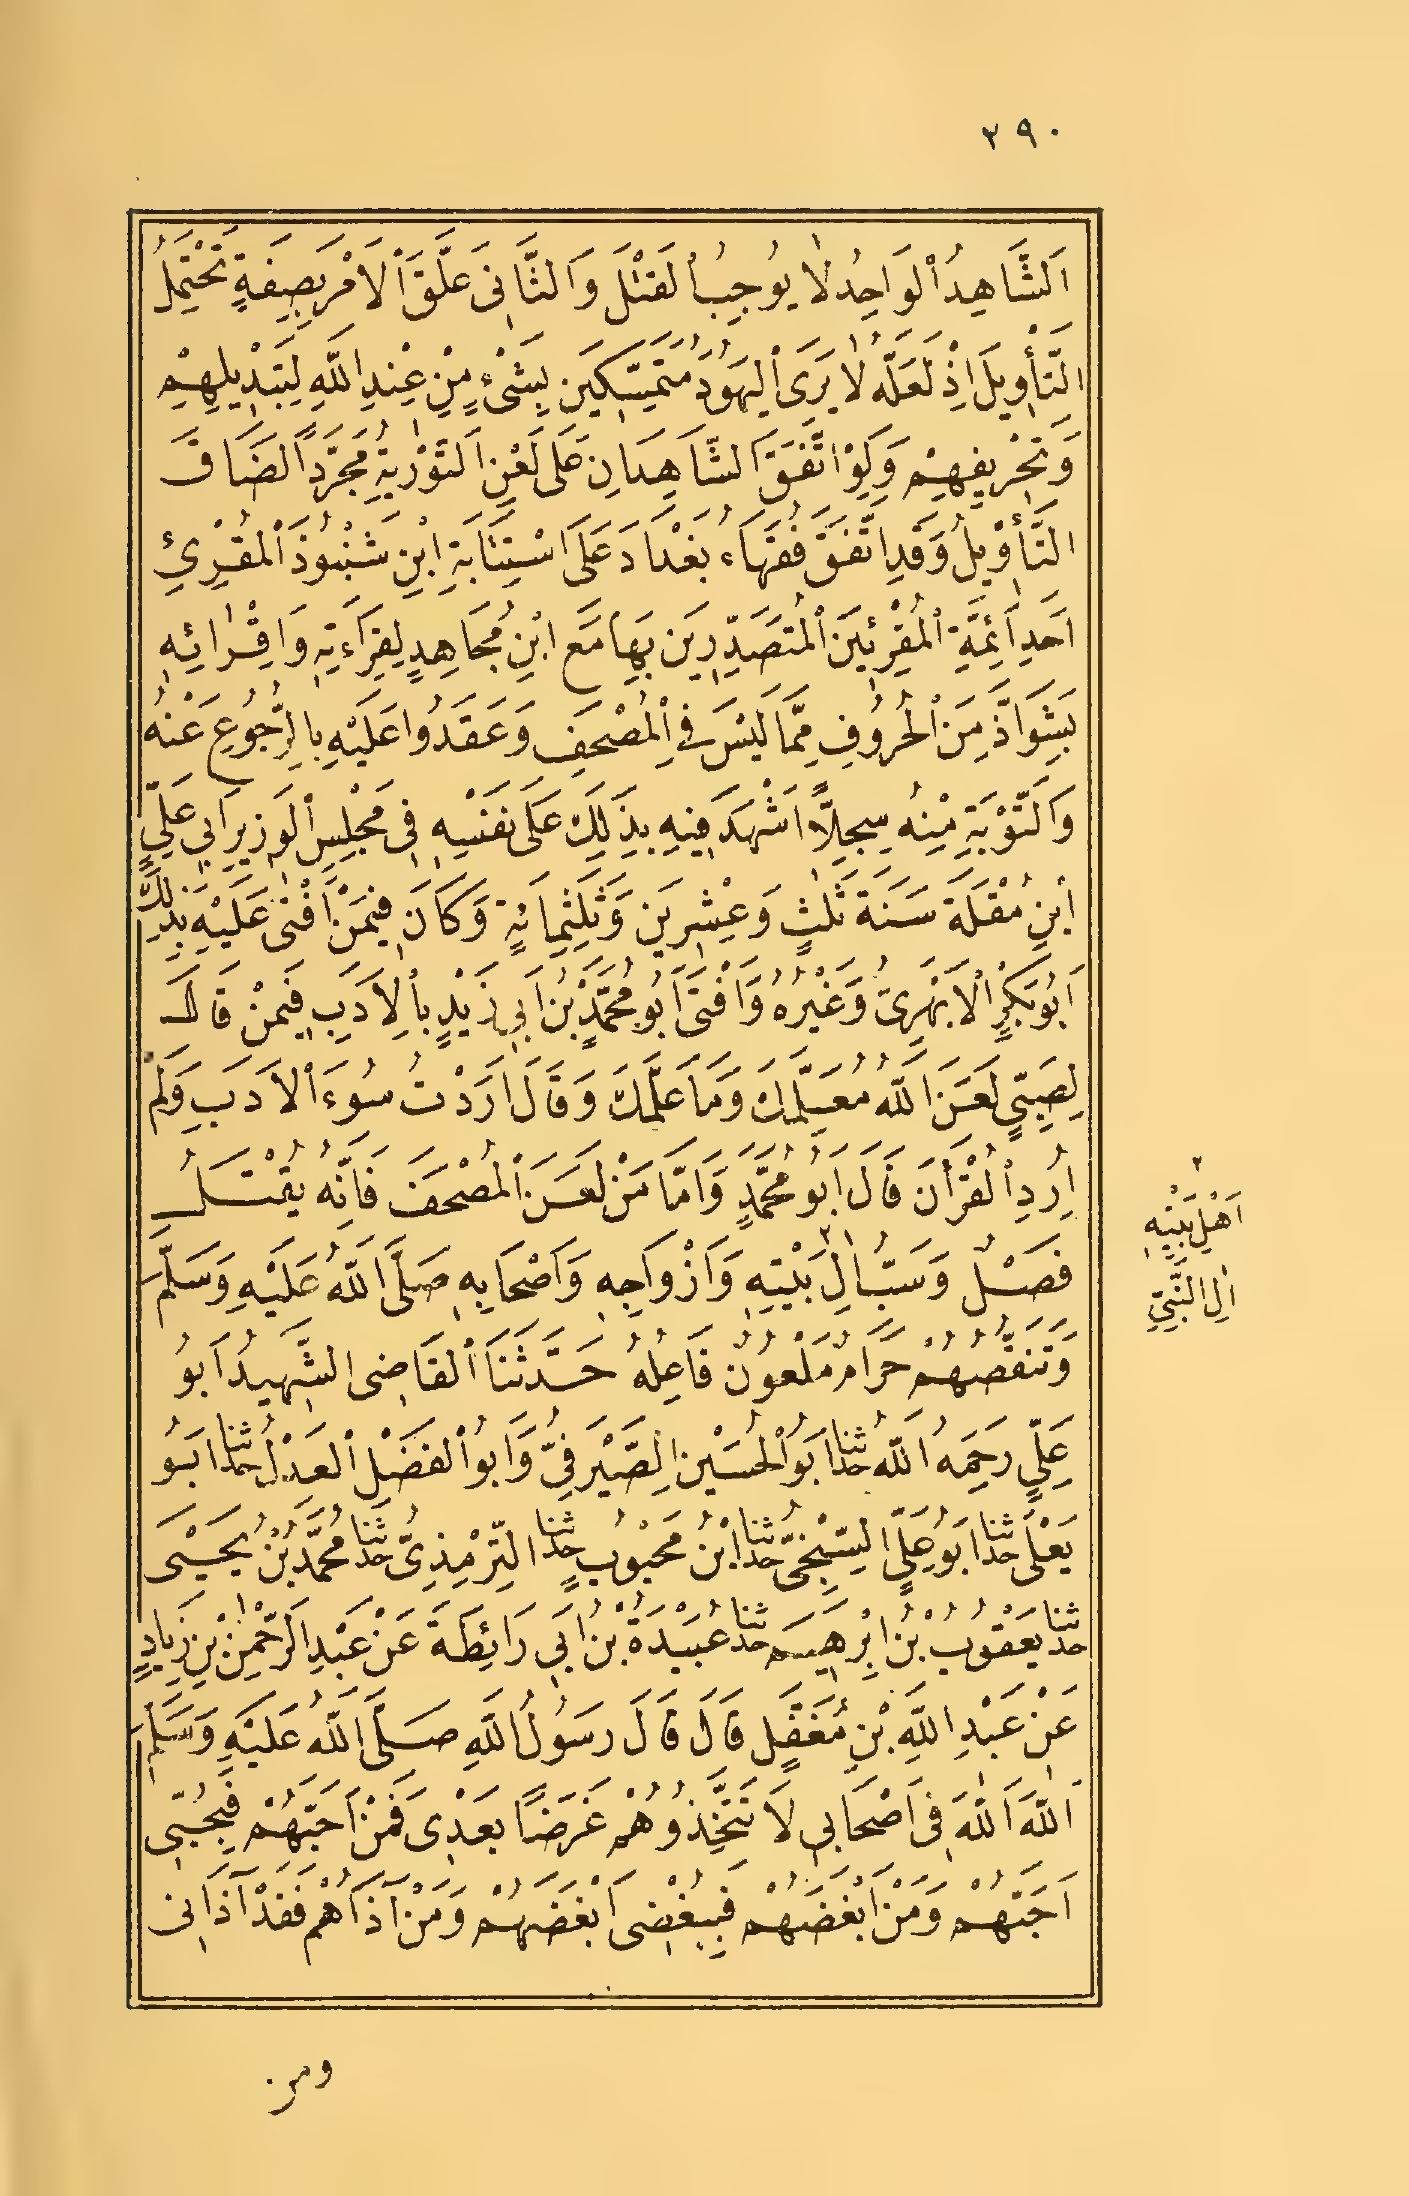 ٢٩٠
اَلشَّاهِدُ الْوَاحِدُ لَا يُوجِبُ الْقَتْلَ وَالثَّانِى عَلَّقَ الْاَمْرَ بِصِفَةٍ تَحْتَمِلُ
التَّأْوِيلَ اِذْ لَعَلَّهُ لَا يَرَى الْيَهُودَ مُتَمَسِّكِينَ بِشَىْءٍ مِنْ عِنْدِ اللّٰهِ لِتَبْدِيلِهِمْ
وَتَحْرِيفِهِمْ وَلَوِ اتَّفَقَ الشَّاهِدَانِ عَلَى لَعْنِ التَّوْرٰيةِ مُجَرَّدًا لَضَاقَ
التَّأْوِيلُ وَقَدِ اتَّفَقَ فُقَهَاءُ بَغْدَادَ عَلَى اسْتِتَابَةِ ابْنِ شَنَبُوذَ الْمُقْرِئِ
اَحَدِ اَئِمَّةِ الْمُقْرِئِينَ الْمُتَصَدِّرِينَ بِهَا مَعَ ابْنِ مُجَاهِدٍ لِقِرَاءَتِهِ وَاِقْرَائِهِ
بِشَوَاذَّ مِنَ الْحُرُوفِ مِمَّا لَيْسَ فِى الْمُصْحَفِ وَعَقَدُوا عَلَيْهِ بِالرُّجُوعِ عَنْهُ
وَالتَّوْبَةِ مِنْهُ سِجِلًّا اَشْهَدَ فِيهِ بِذَلِكَ عَلَى نَفْسِهِ فِى مَجْلِسِ الْوَزِيرِ اَبِى عَلِيٍّ
ابْنِ مُقْلَةَ سَنَةَ ثَلٰثٍ وَعِشْرِينَ وَثَلٰثِمِائَةٍ وَكَانَ فِيمَنْ اَفْتَى عَلَيْهِ بِذَلِكَ
اَبُو بَكْرٍ الْاَبْهَرِىُّ وَغَيْرُهُ وَاَفْتَى اَبُو مُحَمَّدِ بْنُ اَبِى زَيْدٍ بِالْاَدَبِ فِيمَنْ قَالَ
لِصَبِيٍّ لَعَنَ اللّٰهُ مُعَلِّمَكَ وَمَا عَلَّمَكَ وَقَالَ اَرَدْتُ سُوءَ الْاَدَبِ وَلَمْ
اُرِدِ الْقُرْاٰنَ قَالَ اَبُو مُحَمَّدٍ وَاَمَّا مَنْ لَعَنَ الْمُصْحَفَ فَاِنَّهُ يُقْتَلُ
فَصْلٌ وَسَبُّ اٰلِ بَيْتِهِ ٢ وَاَزْوَاجِهِ وَاَصْحَابِهِ صَلَّى اللّٰهُ عَلَيْهِ وَسَلَّمَ
٢
اَهْلِ بَيْتِهِ
اٰلِ النَّبِيِّ
وَتَنَقُّصُهُمْ حَرَامٌ مَلْعُونٌ فَاعِلُهُ حَدَّثَنَا الْقَاضِى الشَّهِيدُ اَبُو
عَلِيٍّ رَحِمَهُ اللّٰهُ حدثنا اَبُو الْحُسَيْنِ الصَّيْرَفِىُّ وَاَبُو الْفَضْلِ الْعَدْلُ حدثنا اَبُو
يَعْلَى حدثنا اَبُو عَلِيٍّ السِّنْجِىُّ حدثنا ابْنُ مَحْبُوبٍ حدثنا التِّرْمِذِىُّ حدثنا مُحَمَّدُ بْنُ يَحْيَى
حدثنا يَعْقُوبُ بْنُ اِبْرٰهِيمَ حدثنا عُبَيْدَةُ بْنُ اَبِى رَائِطَةَ عَنْ عَبْدِ الرَّحْمٰنِ بْنِ زِيَادٍ
عَنْ عَبْدِ اللّٰهِ بْنِ مُغَفَّلٍ قَالَ قَالَ رَسُولُ اللّٰهِ صَلَّى اللّٰهُ عَلَيْهِ وَسَلَّمَ
اَللّٰهَ اَللّٰهَ فِى اَصْحَابِى لَا تَتَّخِذُوهُمْ غَرَضًا بَعْدِى فَمَنْ اَحَبَّهُمْ فَبِحُبِّى
اَحَبَّهُمْ وَمَنْ اَبْغَضَهُمْ فَبِبُغْضِى اَبْغَضَهُمْ وَمَنْ آذَاهُمْ فَقَدْ آذَانِى
ومن